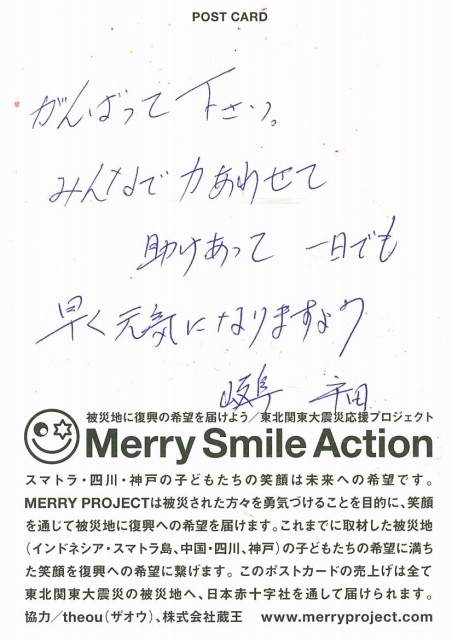 POST CARD
がんばって下さい。
みんなで力あわせて
助けあって 一日でも
早く元気になりますよう
岐阜 宇田
被災地に復興の希望を届けよう/東北関東大震災応援プロジェクト
Merry Smile Action
スマトラ・四川・神戸の子どもたちの笑顔は未来への希望です。
MERRY PROJECTは被災された方々を勇気づけることを目的に、笑顔
を通じて被災地に復興への希望を届けます。これまでに取材した被災地
(インドネシア・スマトラ島、中国・四川、神戸)の子どもたちの希望に満ち
た笑顔を復興への希望に繋げます。このポストカードの売上げは全て
東北関東大震災の被災地へ、日本赤十字社を通して届けられます。
協力/theou(ザオウ)、株式会社蔵王 www.merryproject.com